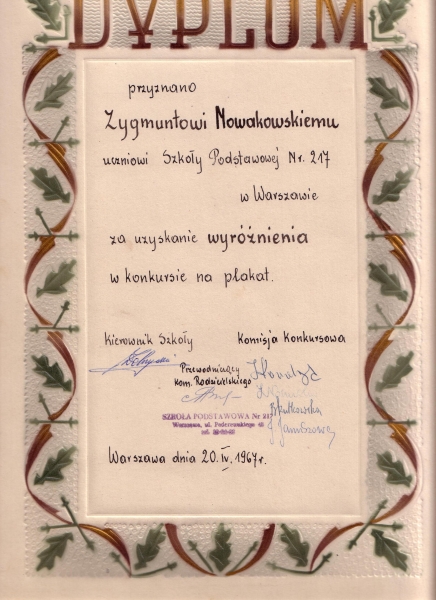 DYPLOM
przyznano
Zygmuntowi Nowakowskiemu
uczniowi Szkoły Podstawowej Nr. 217
w Warszawie
za uzyskanie wyróżnienia
w konkursie na plakat.
Kierownik Szkoły Komisja Konkursowa
Przewodniczący
Kom. Rodzicielskiego
SZKOŁA PODSTAWOWA Nr 217
Warszawa, ul.
Warszawa dnia 20. IV. 1967r.